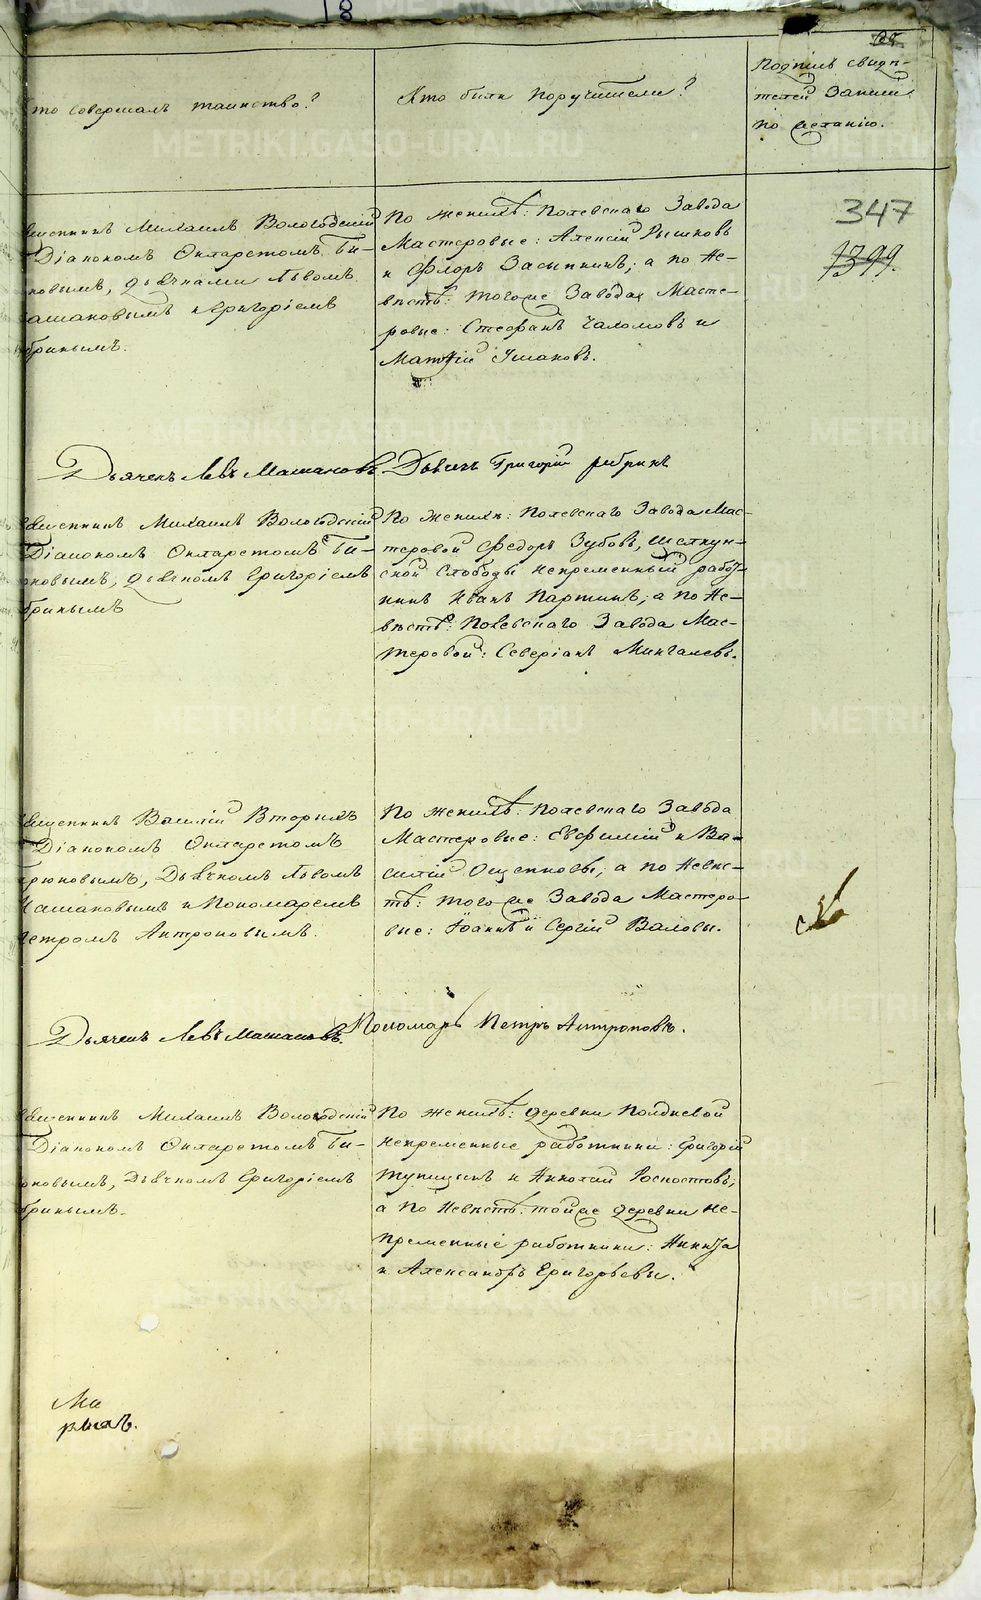 18
то совершалъ таинство?
Кто были поручители?
Подпись свидѣ-
телей записи
по желанію.
347
1399
священникъ Михаилъ Вологодскій
Діакономъ Филаретомъ Би-
ковымъ, дьячками Львомъ
ашаковымъ и Григоріемъ
бринымъ.
По женихѣ: Полевскаго Завода
Мастеровые: Алексій Рышковъ
и Флоръ Засыпкинъ; а по Не-
вѣстѣ: тогоже Завода Масте-
ровые: Стефанъ Чаломовъ и
Матѳій Ушаковъ.
Дьячекъ Левъ Машаковъ
Дьячекъ Григорій Ребринъ
священникъ Михаилъ Вологодскій
Діакономъ Филаретомъ Би-
рюковымъ, дьячкомъ Григоріемъ
бринымъ
По женихѣ: Полевскаго Завода Мас-
теровой Федоръ Зубовъ,
ской Слободы непременный работ-
никъ Иванъ Паршинъ; а по Не-
вѣстѣ: Полевскаго Завода Мас-
теровой: Северіанъ Мингалевъ.
священникъ Василій Вторыхъ
Діакономъ Филаретомъ
рюковымъ, Дьячкомъ Львомъ
Машаковымъ и Пономаремъ
Петромъ Антроповымъ.
По женихѣ: Полевскаго Завода
Мастеровые: Евфимій и Ва-
силій Ощепковы, а по Невѣс-
тѣ: того же Завода Мастеро-
вые: Іоаннъ и Сергій Валовы.
Дьячекъ Левъ Машаковъ.
Пономарь Петръ Антроповъ.
священникъ Михаилъ Вологодскій
Діакономъ Филаретомъ Би-
рюковымъ, Дьячкомъ Григоріемъ
бринымъ.
По женихѣ: деревни Полдневой
непременные работники: Григорій
Тупицынъ и Николай Роспостовъ;
а по Невѣстѣ: тойже деревни не-
пременные работники: Никита
и Александръ Григорьевы.
METRIKI.GASO-URAL.RU